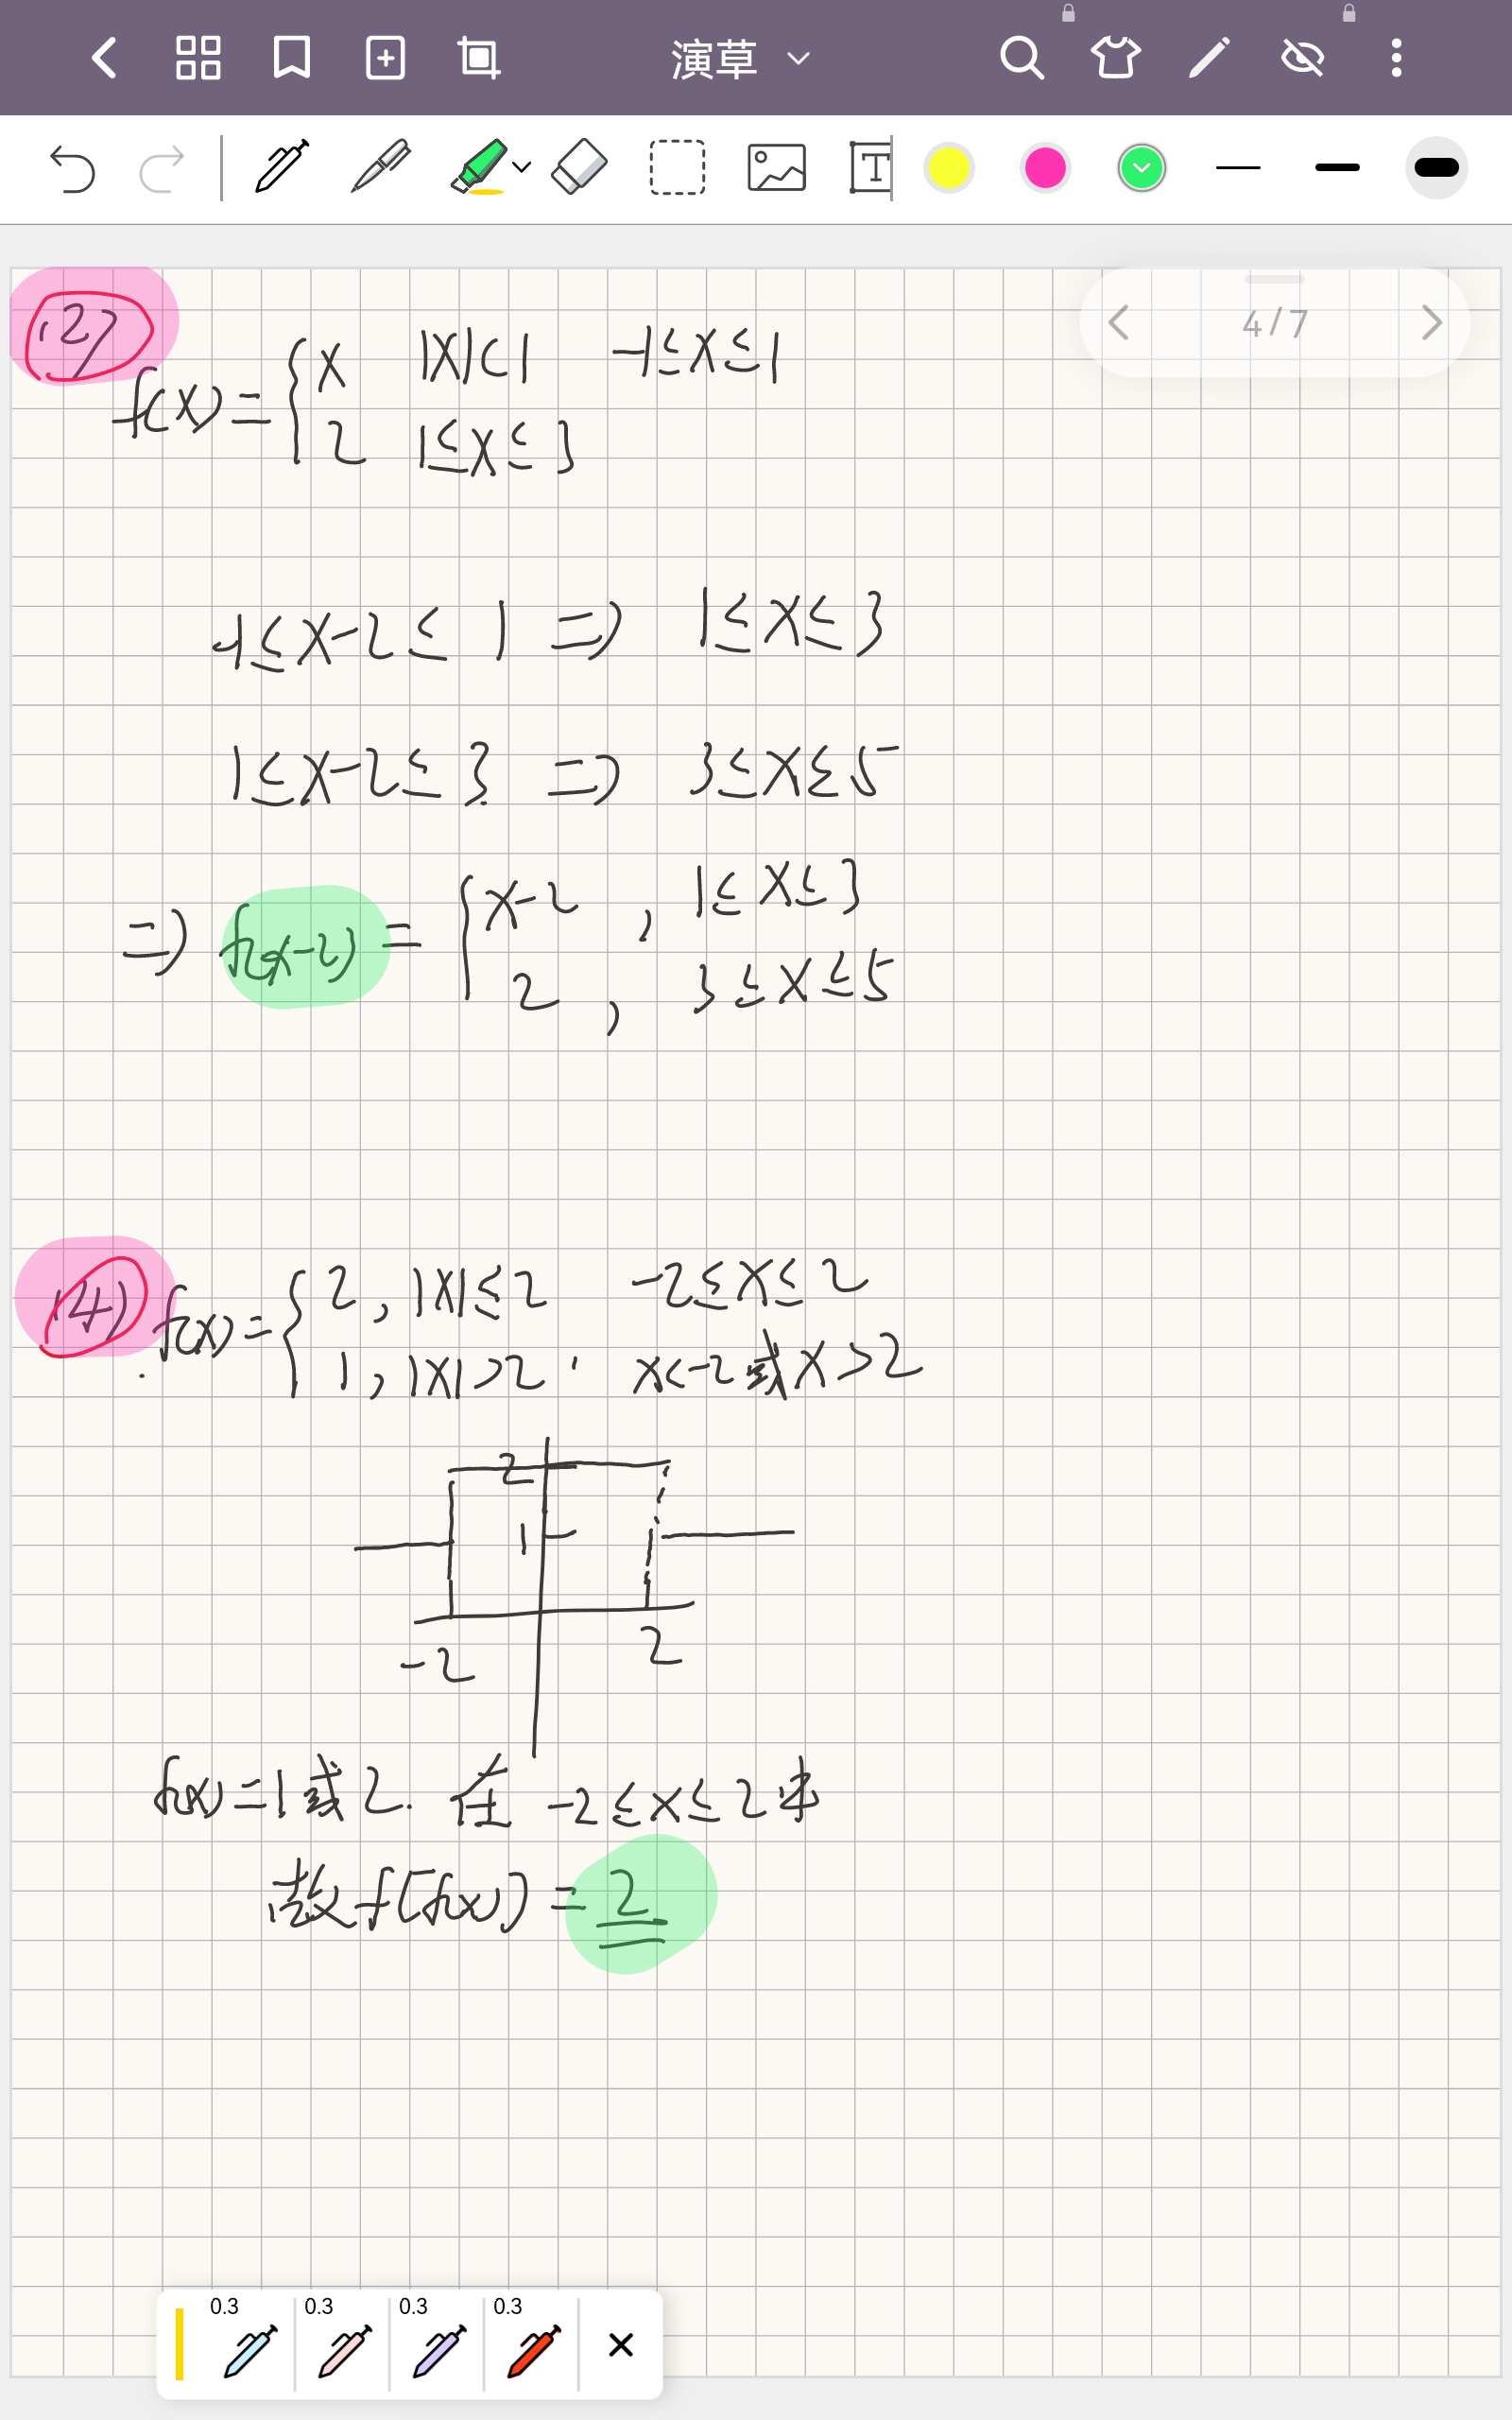 演草
4/7
(2)
f(x)={x |x|<1 -1≤x≤1
2 1≤x≤3
-1≤x-2≤1 ⇒ 1≤x≤3
1≤x-2≤3 ⇒ 3≤x≤5
⇒ f(x-2)={x-2 , 1≤x≤3
2 , 3≤x≤5
(4) f(x)={2, |x|≤2 -2≤x≤2
1, |x|>2. x<-2或x>2
2
1
-2 2
f(x)=1或2. 在 -2≤x≤2中
故f(f(x))=2
0.3 0.3 0.3 0.3